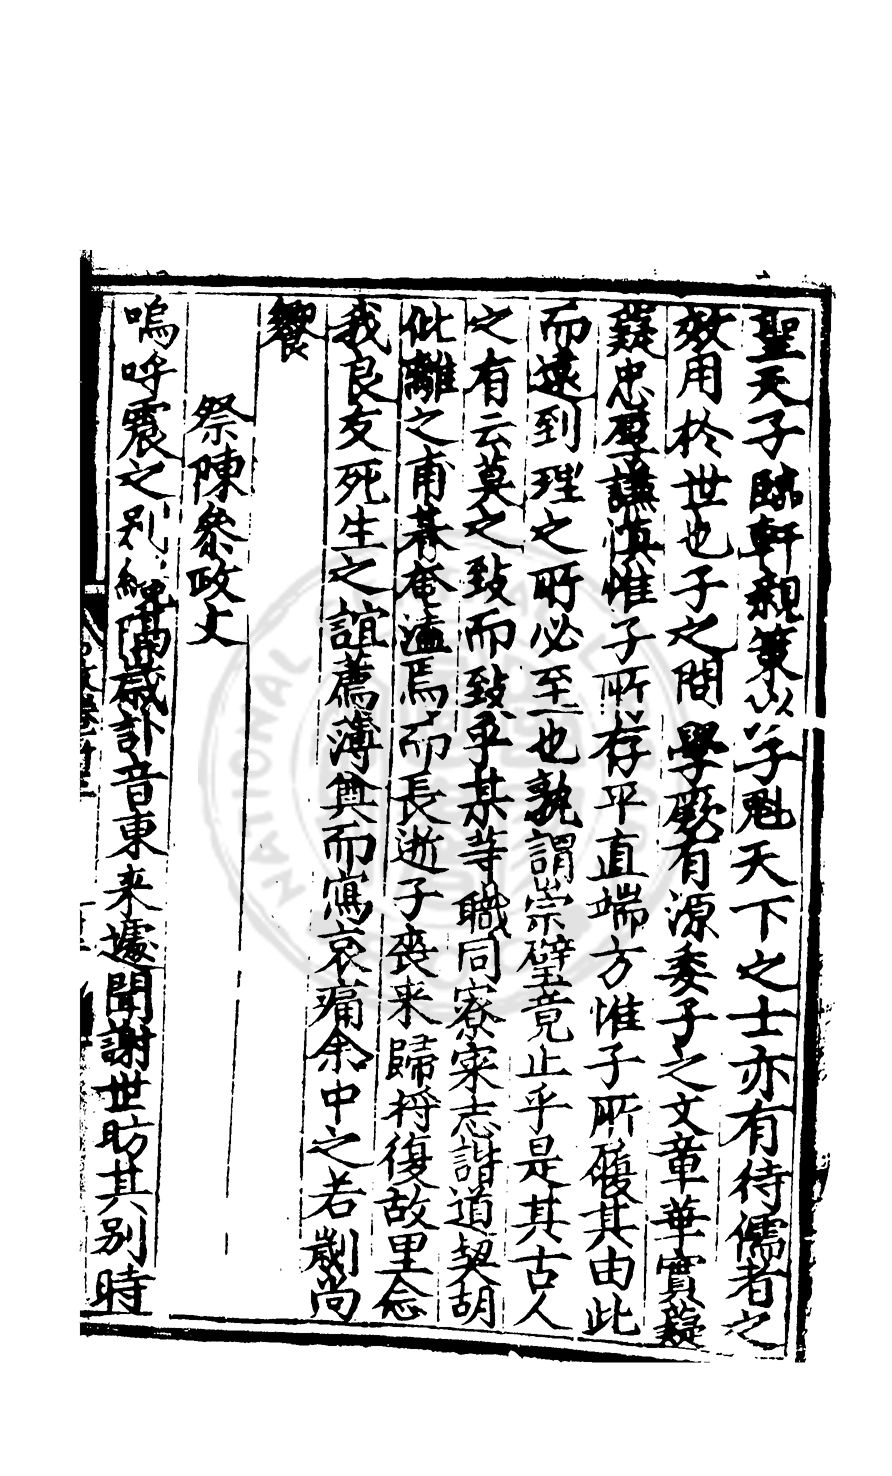 聖天子臨軒親策以子魁天下之士亦有待儒者之
效用於世也子之問學厥有源委子之文章華實薿
薿忠厚謙慎惟子所存平直端方惟子所履其由此
而遠到理之所必至也孰謂崇墜竟止乎是其古人
之有云莫之致而致乎某等職同寮寀志諧道契胡
仳離之甫朞奄溘焉而長逝子喪来歸将復故里念
我良友死生之誼薦薄奠而寫哀痛余中之若劌尚
饗
祭陳參政文
嗚呼震之別纔隔歲訃音東来遽聞謝世昉其别時
NATIONAL